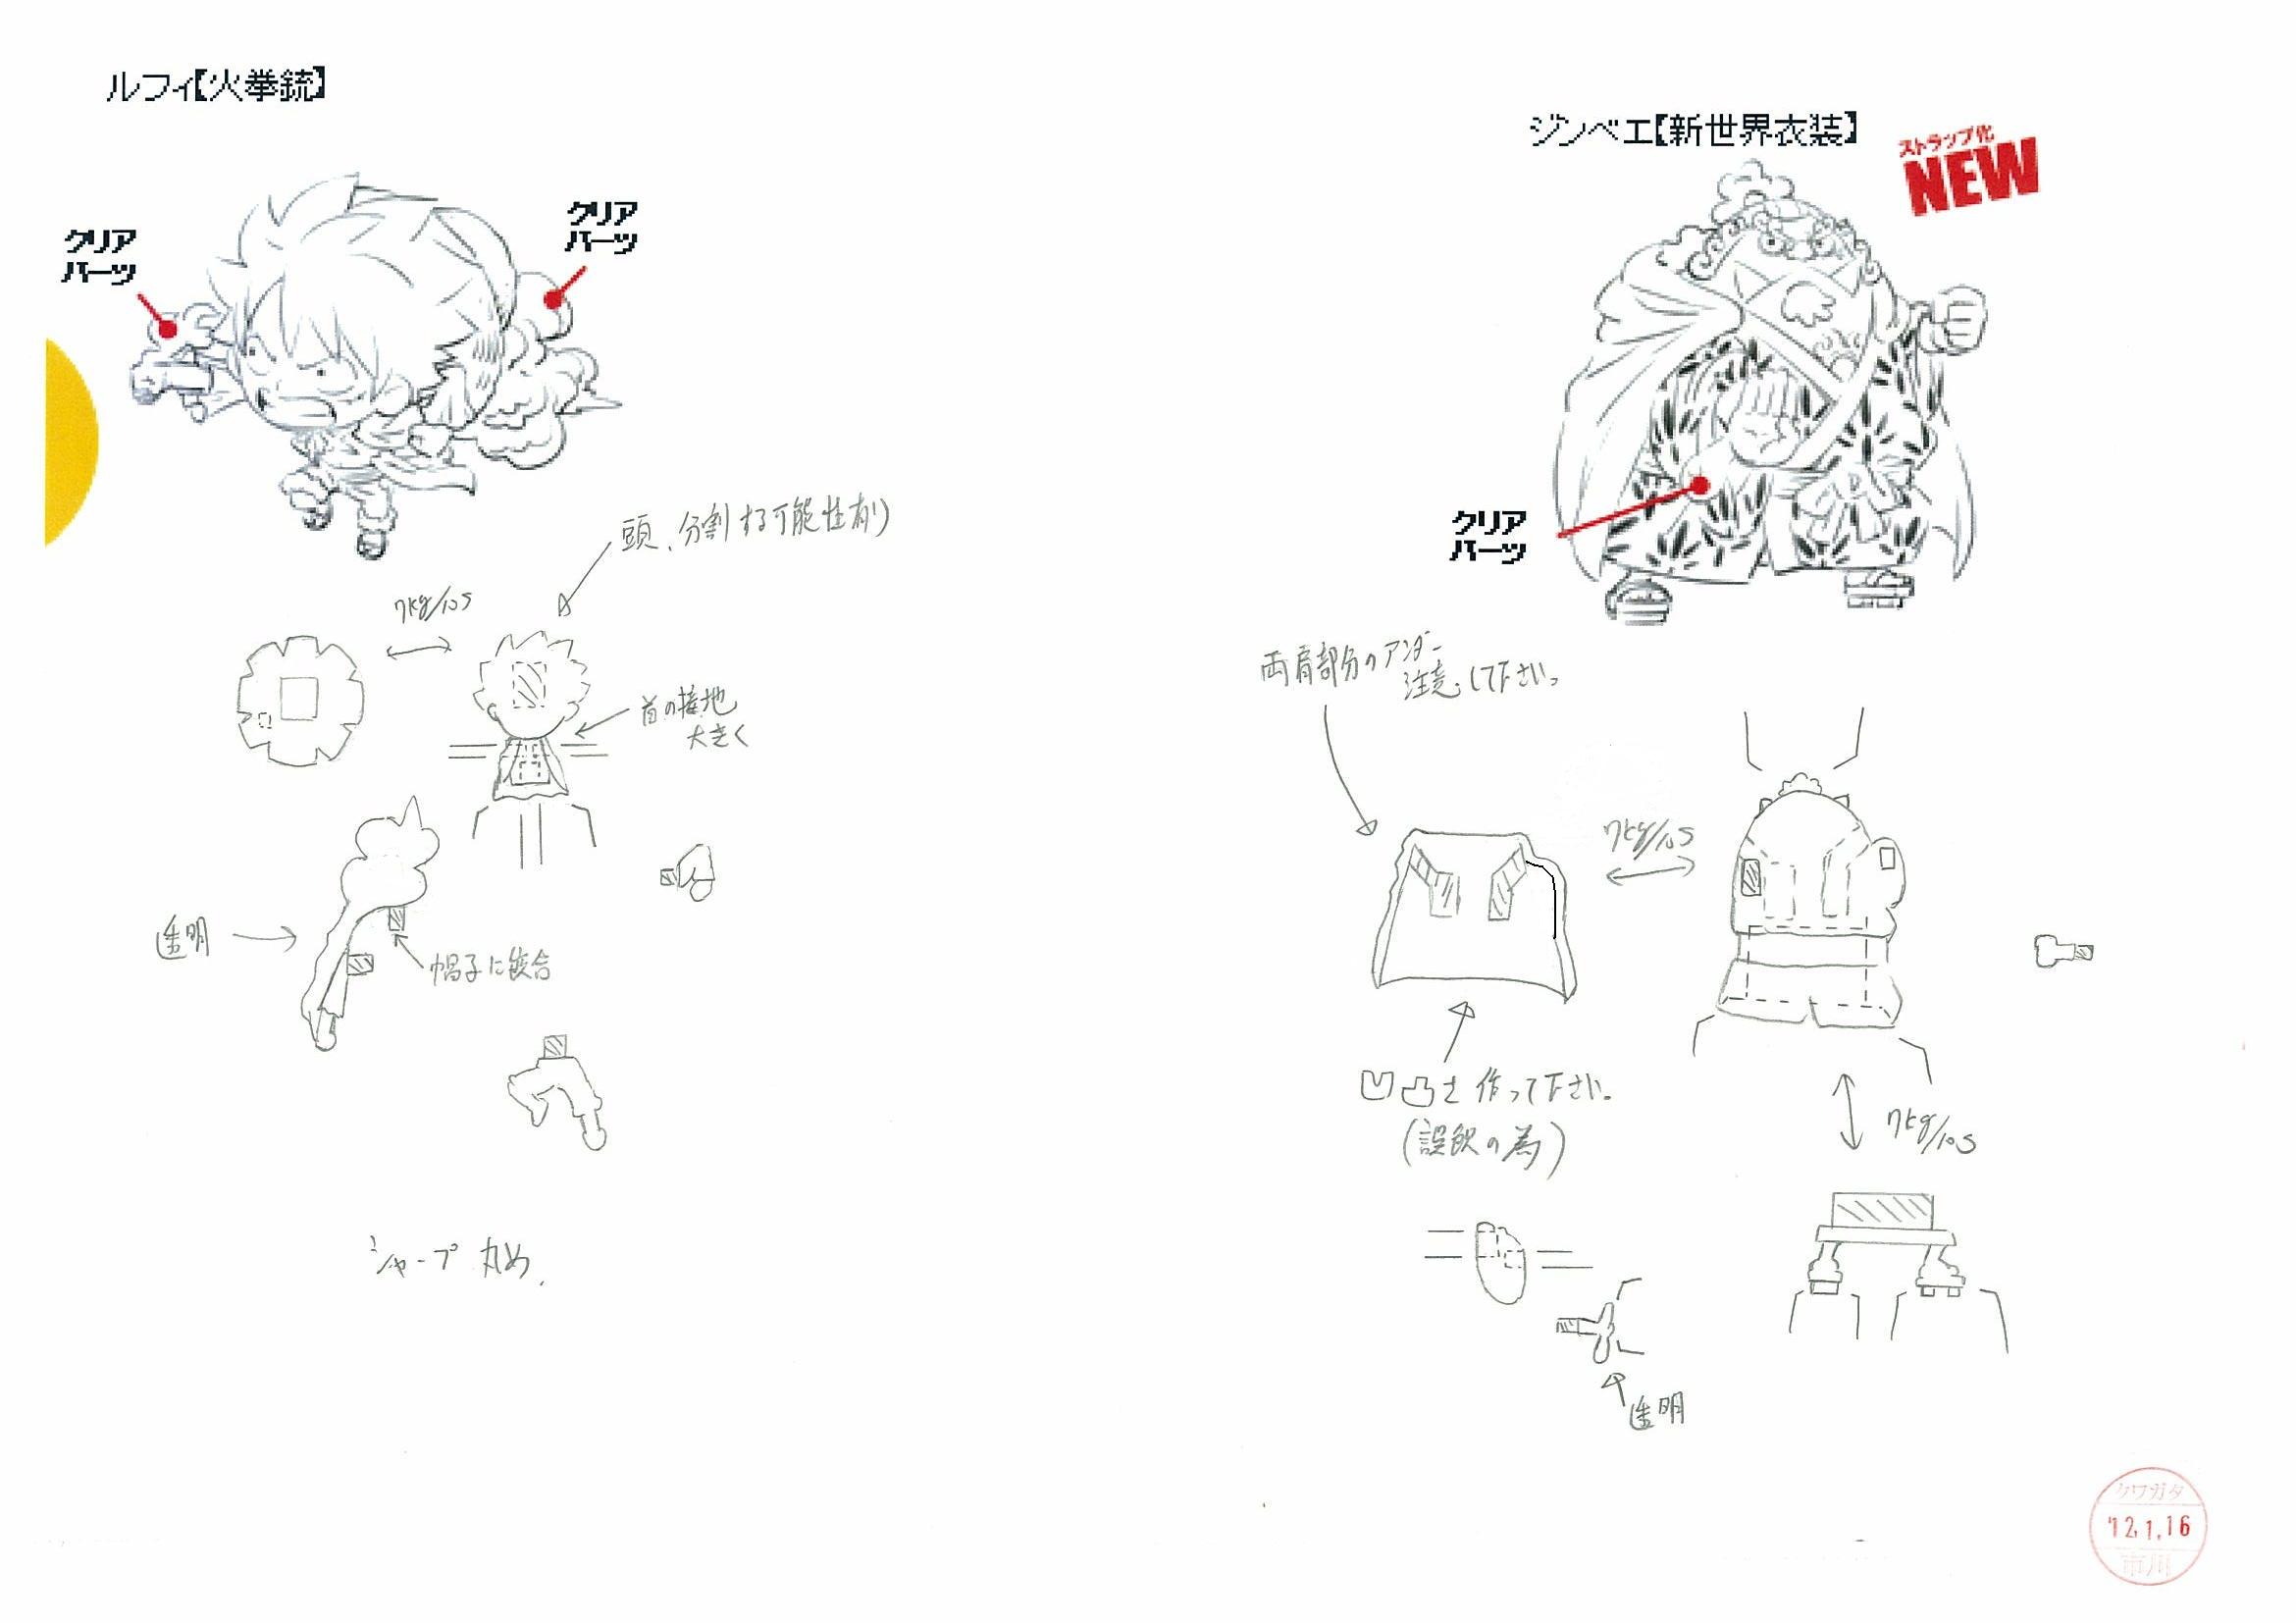 ルフィ【火拳銃】
クリア
パーツ
クリア
パーツ
頭、分割する可能性有り
7kg/10S
首の接地
大きく
透明
帽子に嵌合
シャープ丸め、
ジンベエ【新世界衣装】
ストラップ化
NEW
クリア
パーツ
両肩部分のアンダー
注意して下さい。
7kg/10S
凹凸を作って下さい。
(誤飲の為)
7kg/10S
透明
クワガタ
'12.1.16
市川